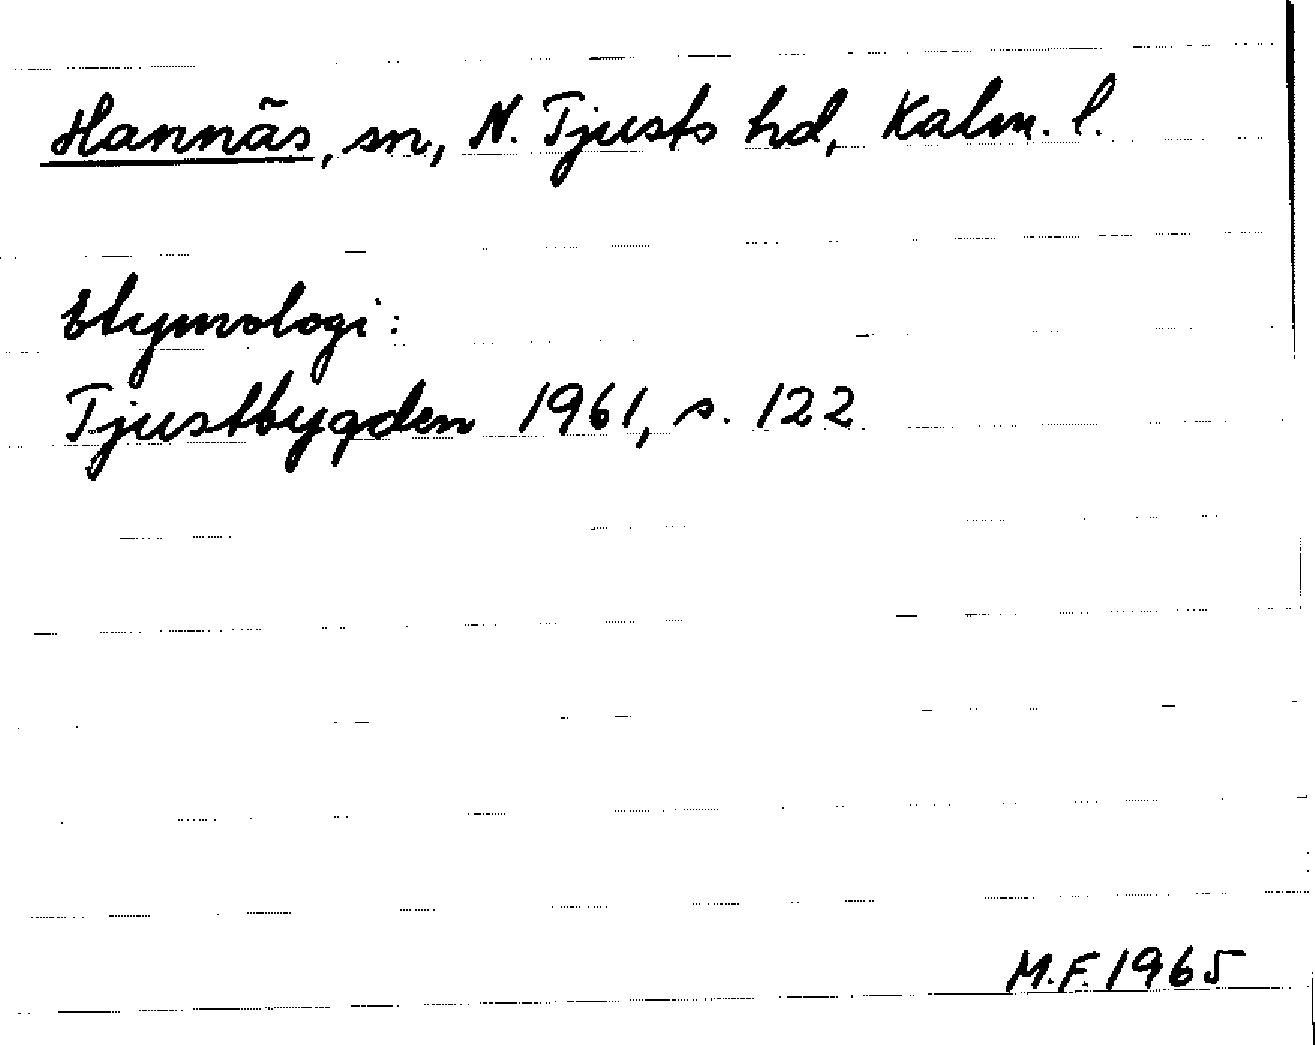 Hannäs, sn, N. Tjusts hd, Kalm. l.
Etymologi:
Tjustbygden 1961, s. 122
M.F. 1965